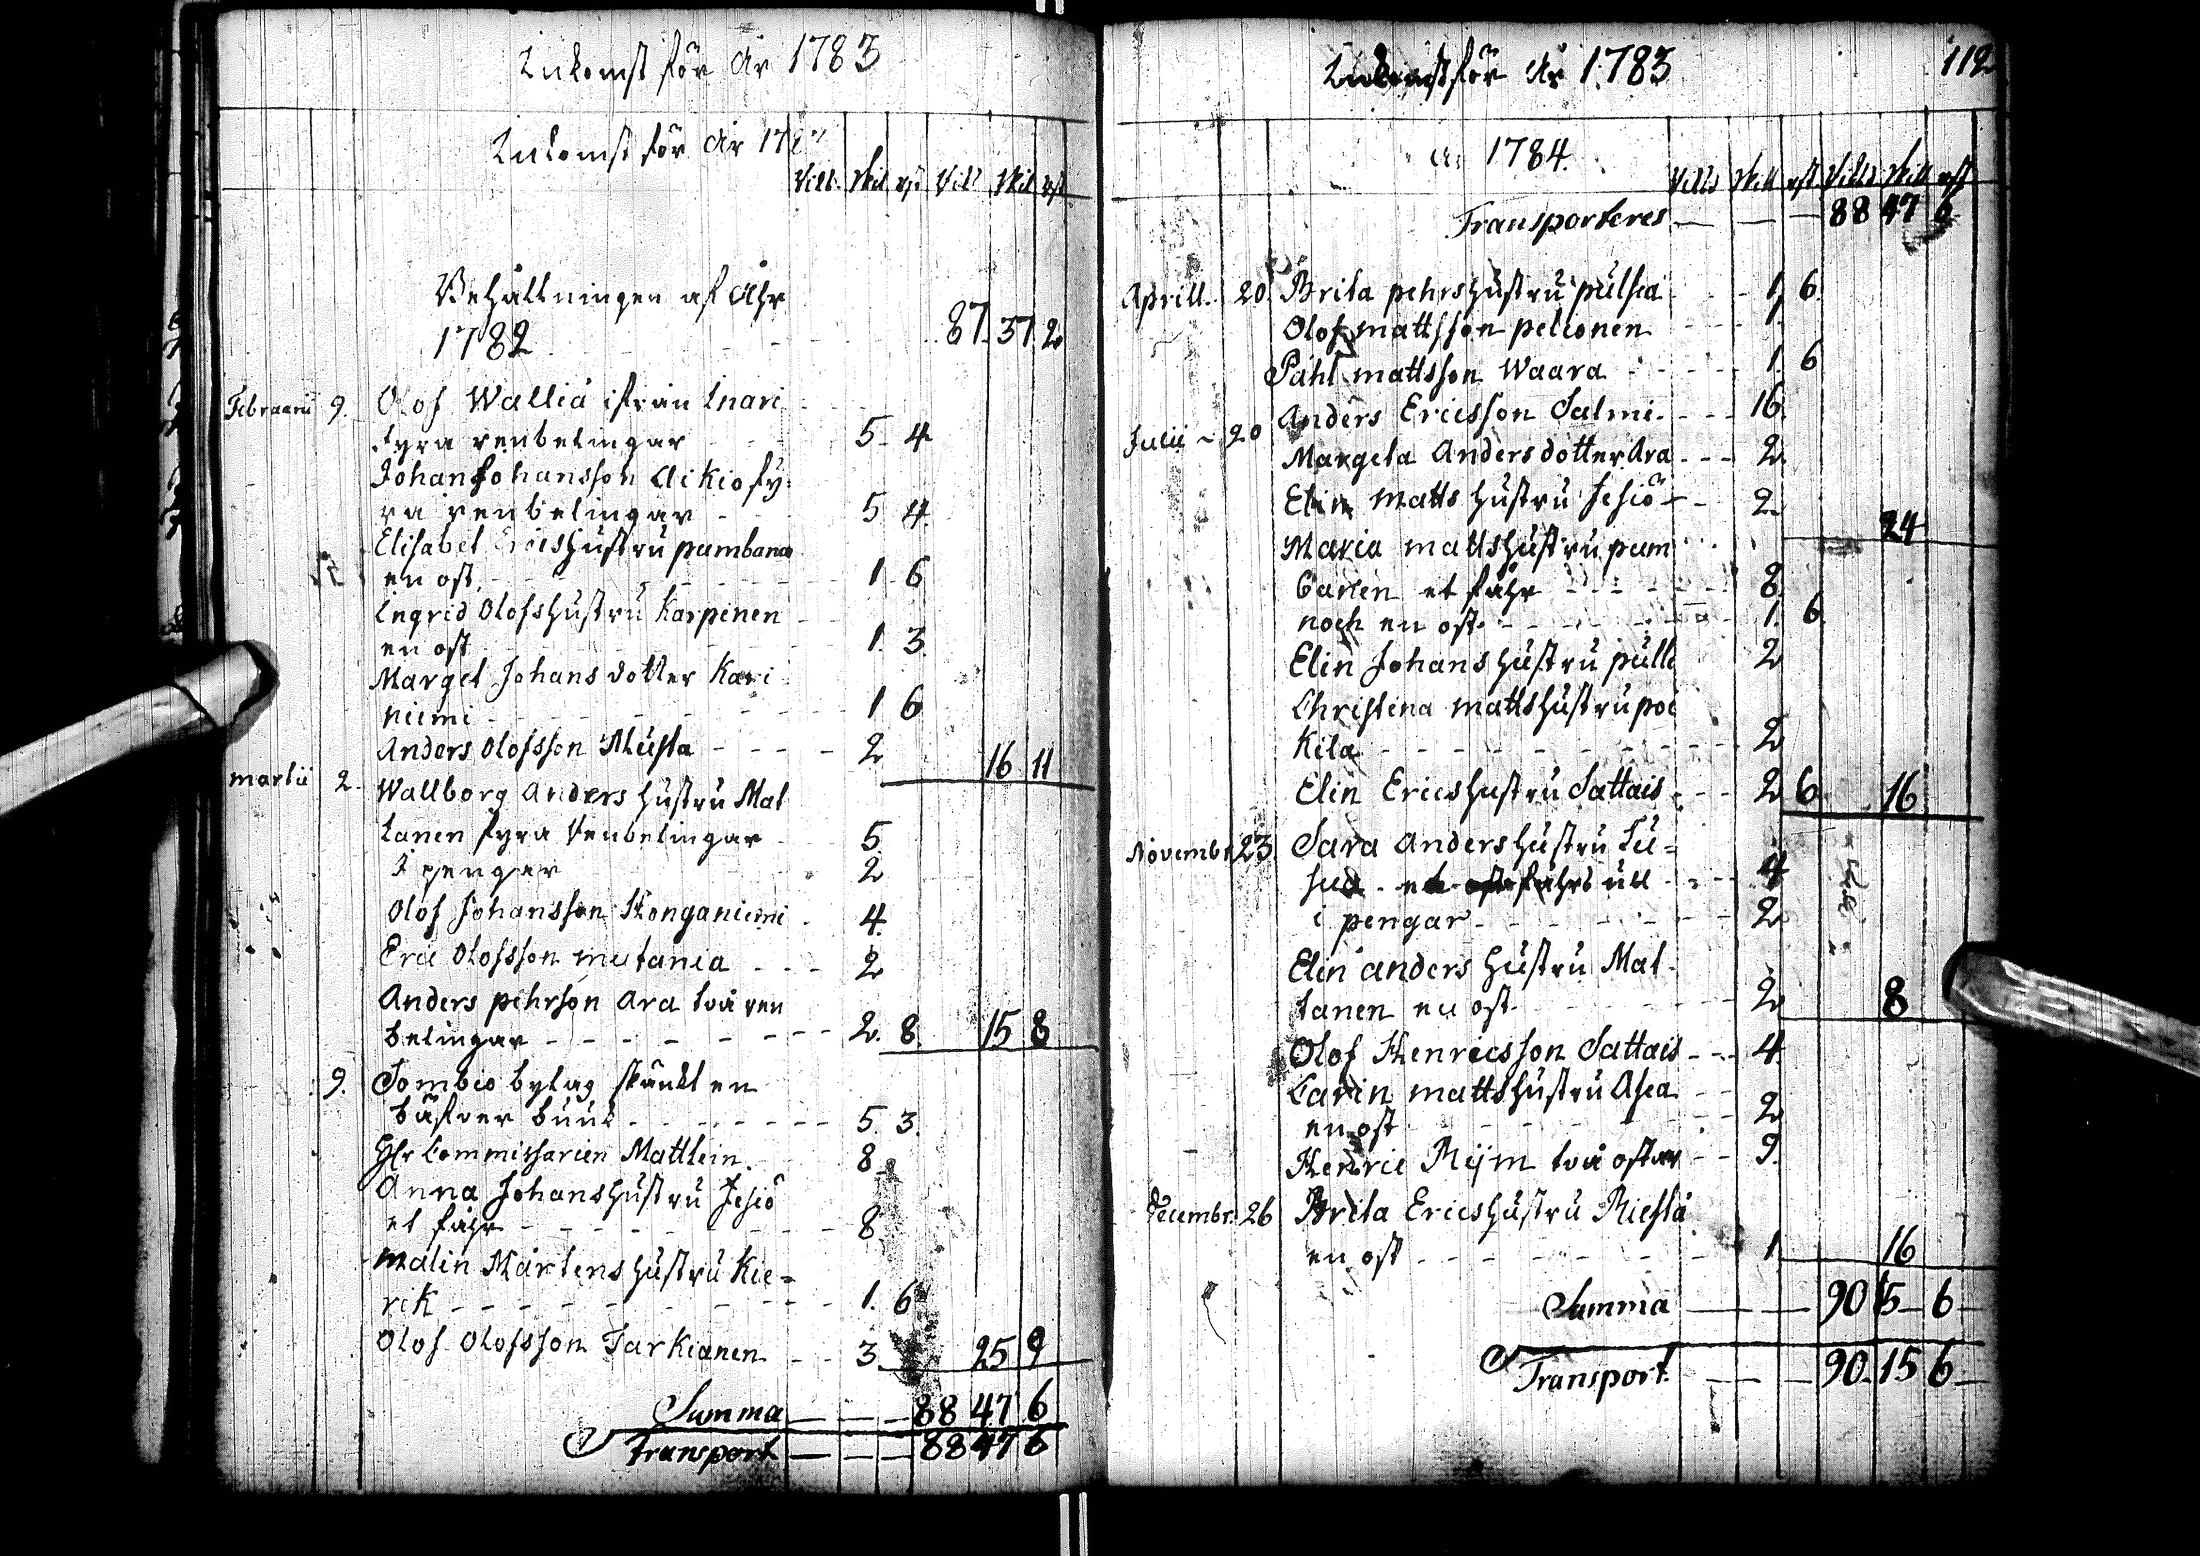 Inkomst för År 1783
Inkomst för År
Rikd. Skil. rst Rikd Skil rst
Behållningen af Åhr
1782 87. 37. 2
Februarii 9. Olof Wallia ifrån Enari
fyra renbelingar 5. 4
Johan Johansson Aikio fy-
ra renbelingar 5 4
Elisabet Erics hustru pumbana
en ost 1. 6
Ingrid Olofs hustru Karpinen
en ost 1. 3
Marget Johans dotter Kari
niemi 1 6
Anders Olofsson Musta 2 16 11
martii 2. Wallborg Anders hustru Mat
tanen fyra renbelingar 5.
I pengar 2
Olof Johansson Honganiemi 4.
Eric Olofsson mutania 2
Anders pehrson Ara två ren
belingar 2. 8. 15 8
9. Sombio bylag skänkt en
bäfver 5. 3.
Hr Commissarien Mattlein 8
Anna Johans hustru Jesiö
et fåhr 8
Malin Mårtens hustru Kie-
rik 1. 6
Olof Olofsson Tarkianen 3 25 9
Summa 88 47 6
Transport 88 47 6
Inkomst för År 1783 112
1784.
Rikd Skill rst Rikd Skill rst
Transporteres 88 47 6
Aprill. 20. Brita pehrs hustru pulsia 1. 6.
Olof mattsson peltonen 1.
Påhl mattsson Waara 1. 6
Anders Ericsson Salmi 16.
Julii 20 Margeta Anders dotter Ara 2.
Elin Matts hustru Jesiö 2.
24
Maria matts hustru pum
banen et fåhr 8.
noch en ost 1. 6.
Elin Johans hustru pulk 2
Christina matts hustru poi
Kila 2
Elin Erics hustru Sattais 2 6 16
Novembr 23. Sara Anders hustru
fåhrs ull 4
i pengar 2
Elin anders hustru Mat-
tanen en ost 2 8
Olof Henricsson Sattais 4.
Carin matts hustru Asia
en ost 2
Henric Rijm två ostar 9.
Decembr. 26 Brita Erics hustru Riesta
en ost 1 16
Summa 90 15 6
Transport 90. 15 6